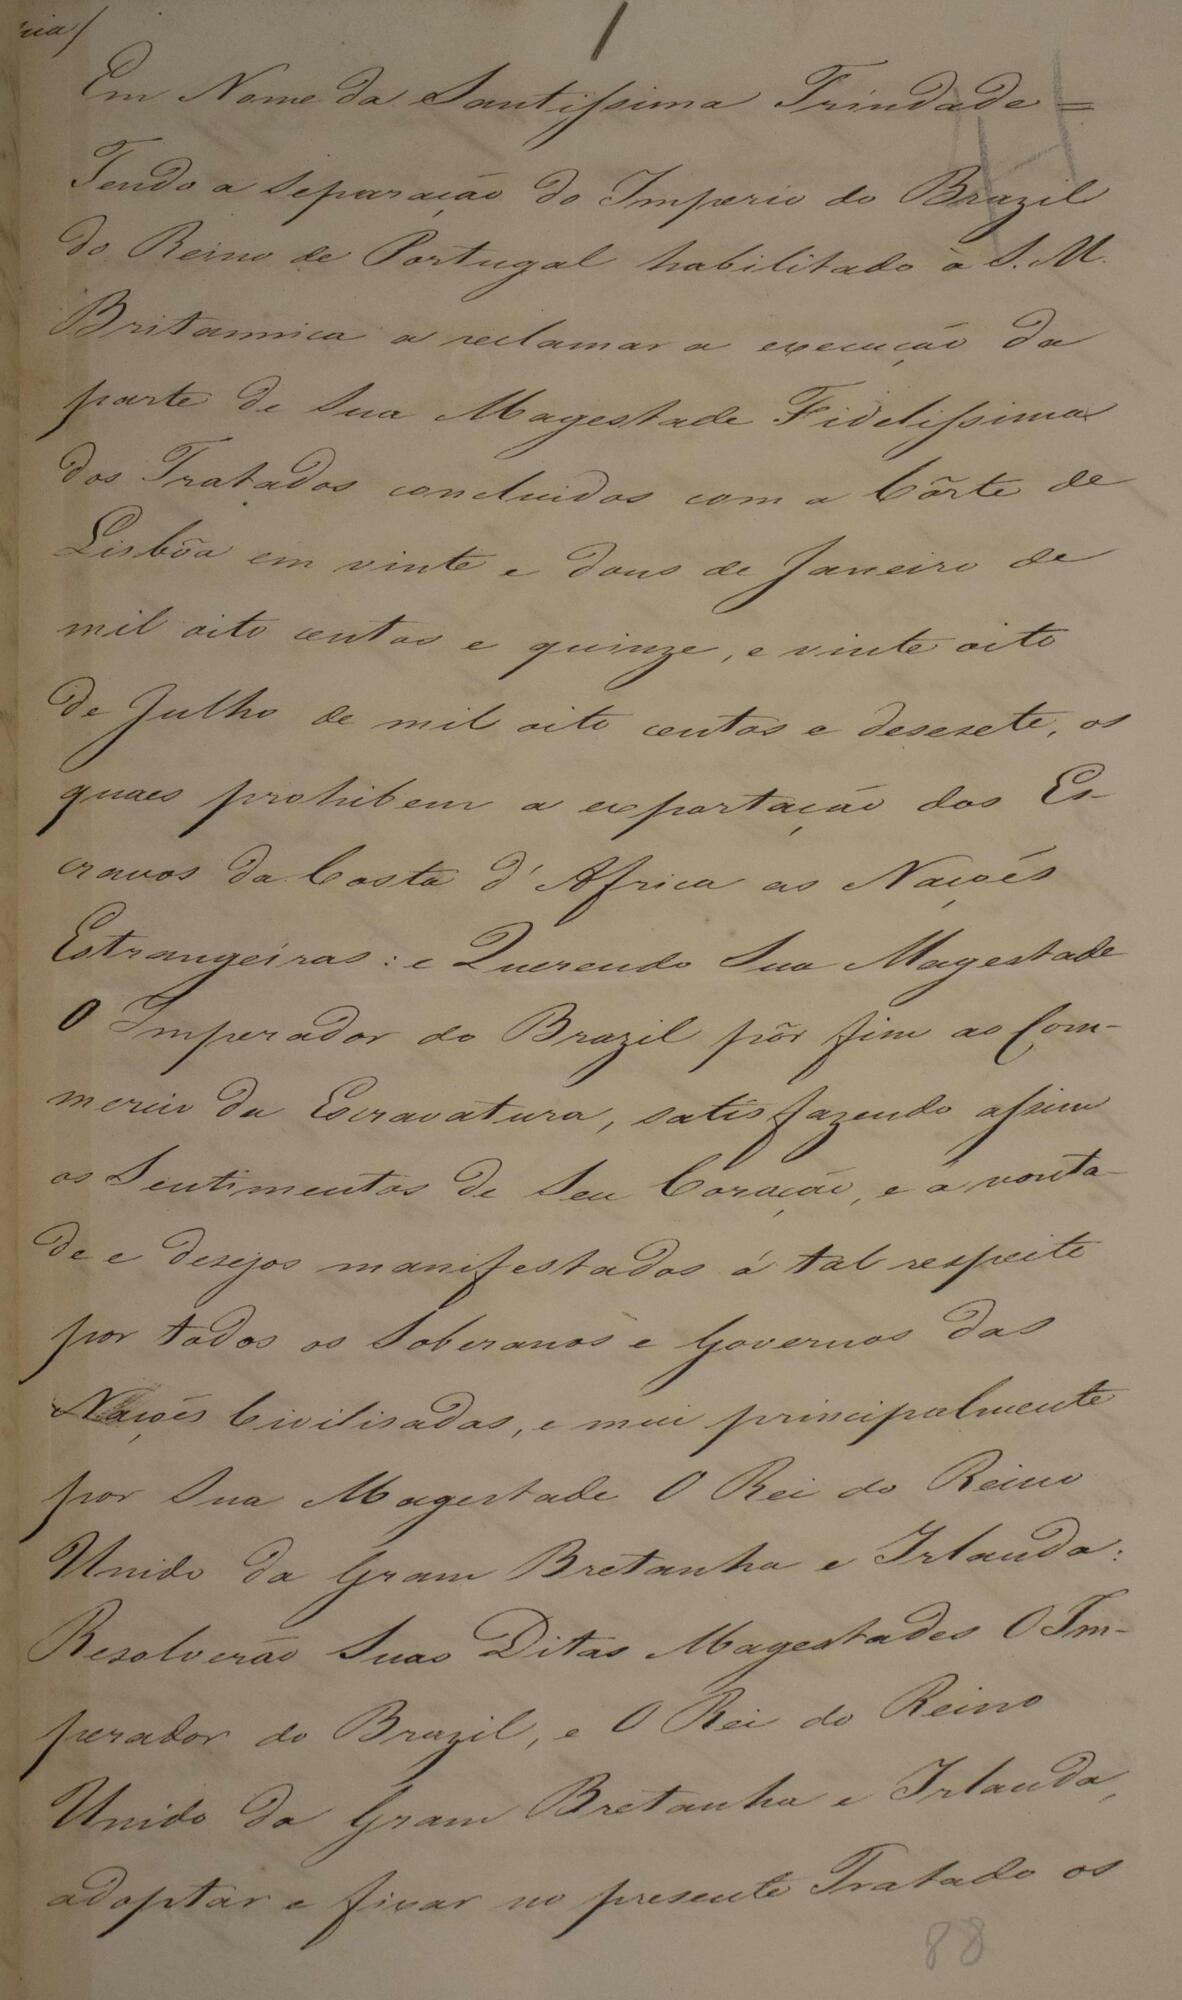 Em Nome da Santissima Trindade =
Tendo a separação do Imperio do Brazil
do Reino de Portugal habilitado à S. M.
Britannica a reclamar a execução da
parte de Sua Magestade Fidelissima
dos Tratados concluidos com a Côrte de
Lisbôa em vinte e dous de Janeiro de
mil oito centos e quinze, e vinte oito
de Julho de mil oito centos e desesete, os
quaes prohibem a exportação dos Es-
cravos da Costa d'Africa as Nações
Estrangeiras: e Querendo Sua Magestade
O Imperador do Brazil pôr fim ao Com-
mercio da Escravatura, satisfazendo assim
os Sentimentos de Seu Coração, e a vonta-
de e desejos manifestados á tal respeito
por todos os Soberanos e Governos das
Nações Civilisadas, e mui principalmente
por Sua Magestade O Rei do Reino
Unido da Gram Bretanha e Irlanda:
Resolverão Suas Ditas Magestades O Im-
perador do Brazil, e O Rei do Reino
Unido da Gram Bretanha e Irlanda,
adoptar e fixar no presente Tratado os
88